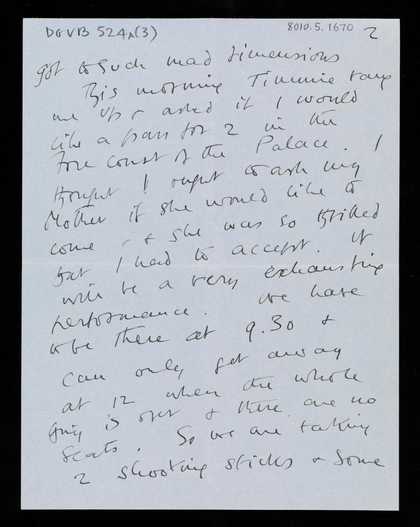 DGVB 52A(3)
8010.5.1670
2
got to such mad dimensions
This morning Timmie rang
me up & asked if I would
like a pass for 2 in the
Fore Court of the Palace. I
thought I ought to ask my
Mother if she would like to
come, & she was so thrilled
that I had to accept. It
will be a very exhausting
performance. We have
to be there at 9.30 &
can only get away
at 12 when the whole
thing is over & there are no
seats. So we are taking
2 shooting sticks & some